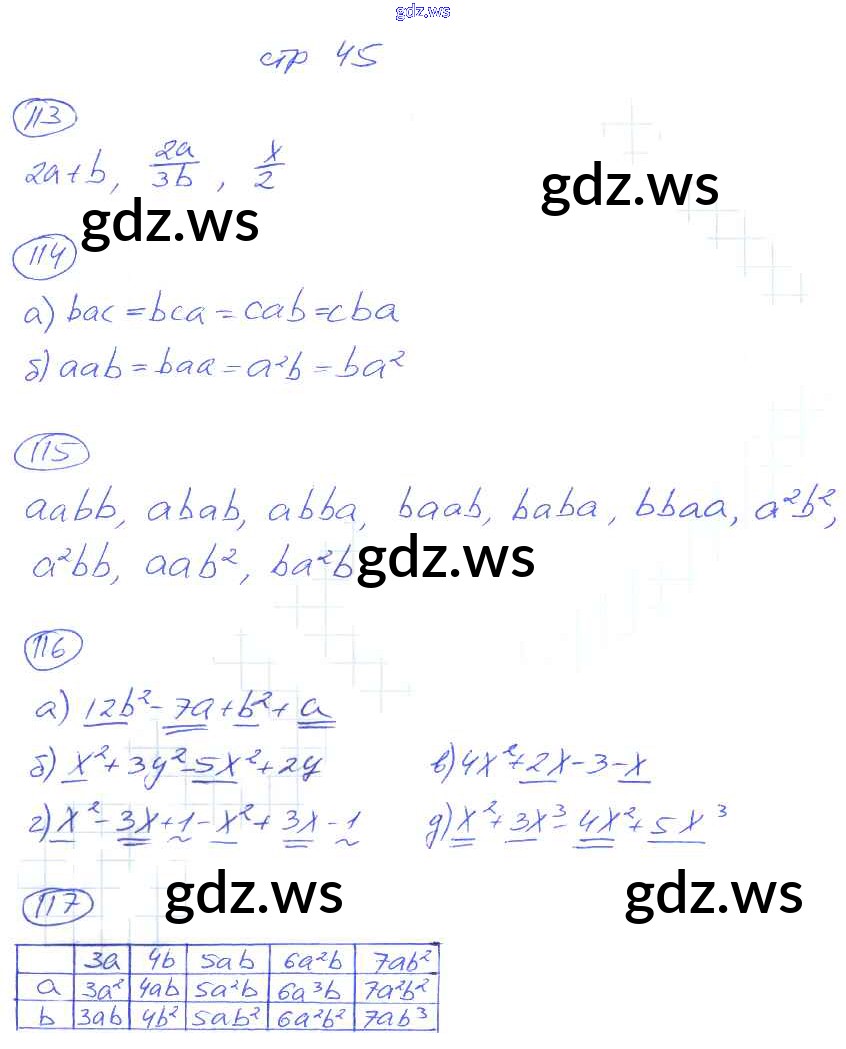 gdz.ws
стр 45
113
2a+b, 2a/3b, x/2
gdz.ws
gdz.ws
114
а) bac = bca = cab = cba
б) aab = baa = a²b = ba²
115
aabb, abab, abba, baab, baba, bbaa, a²b²,
a²bb, aab², ba²b
gdz.ws
116
а) 12b² - 7a + b² + a
б) x² + 3y² - 5x² + 2y
в) 4x² + 2x - 3 - x
г) x² - 3x + 1 - x² + 3x - 1
д) x² + 3x³ - 4x² + 5x³
117
gdz.ws
gdz.ws
3a 4b 5ab 6a²b 7ab²
a 3a² 4ab 5a²b 6a³b 7a²b²
b 3ab 4b² 5ab² 6a²b² 7ab³